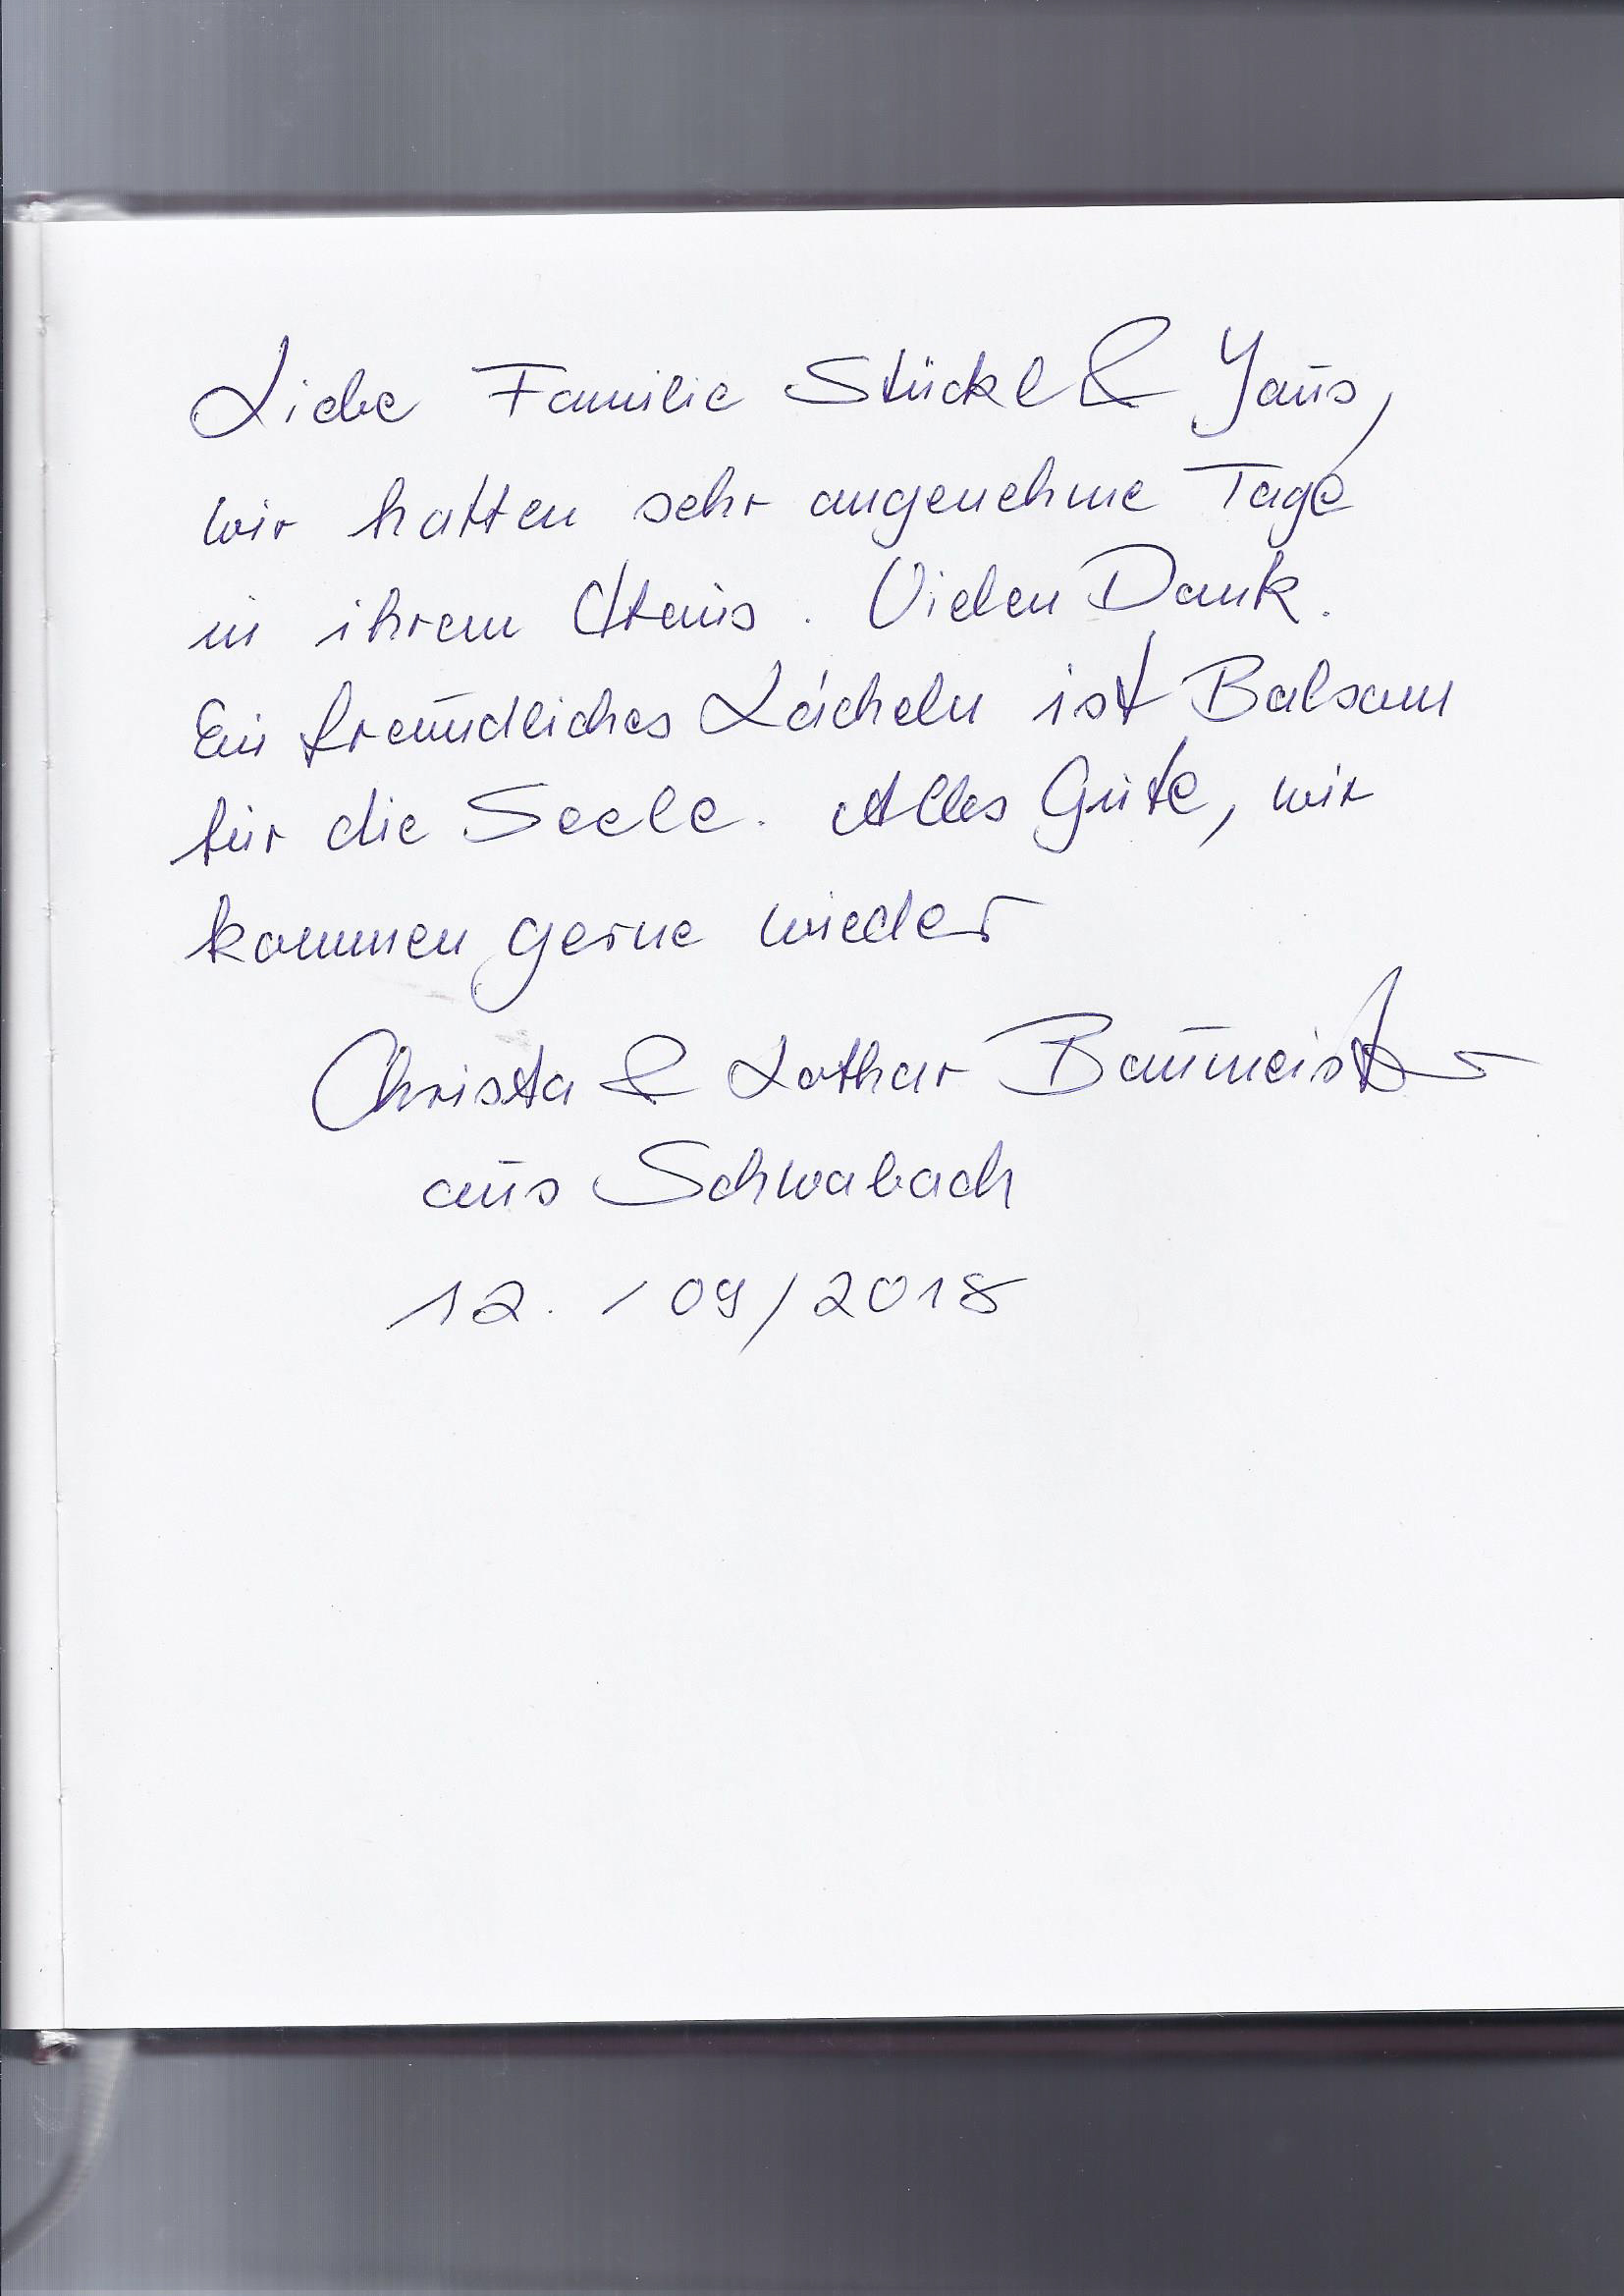 Liebe Familie Stückl & Yaus,
wir hatten sehr angenehme Tage
in ihrem Haus. Vielen Dank.
Ein freundliches Lächeln ist Balsam
für die Seele. Alles Gute, wir
kommen gerne wieder
Christa & Lothar Baumeister
aus Schwabach
12. / 09/2018